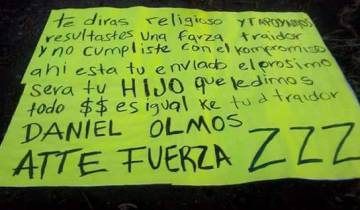 te diras religioso
resultastes una farza traidor
y no cumpliste con el kompromiso
ahi esta tu enviado el prosimo
sera tu HIJO que ledimos
todo $$ es igual ke tu d traidor
DANIEL OLMOS
ATTE FUERZA ZZZ